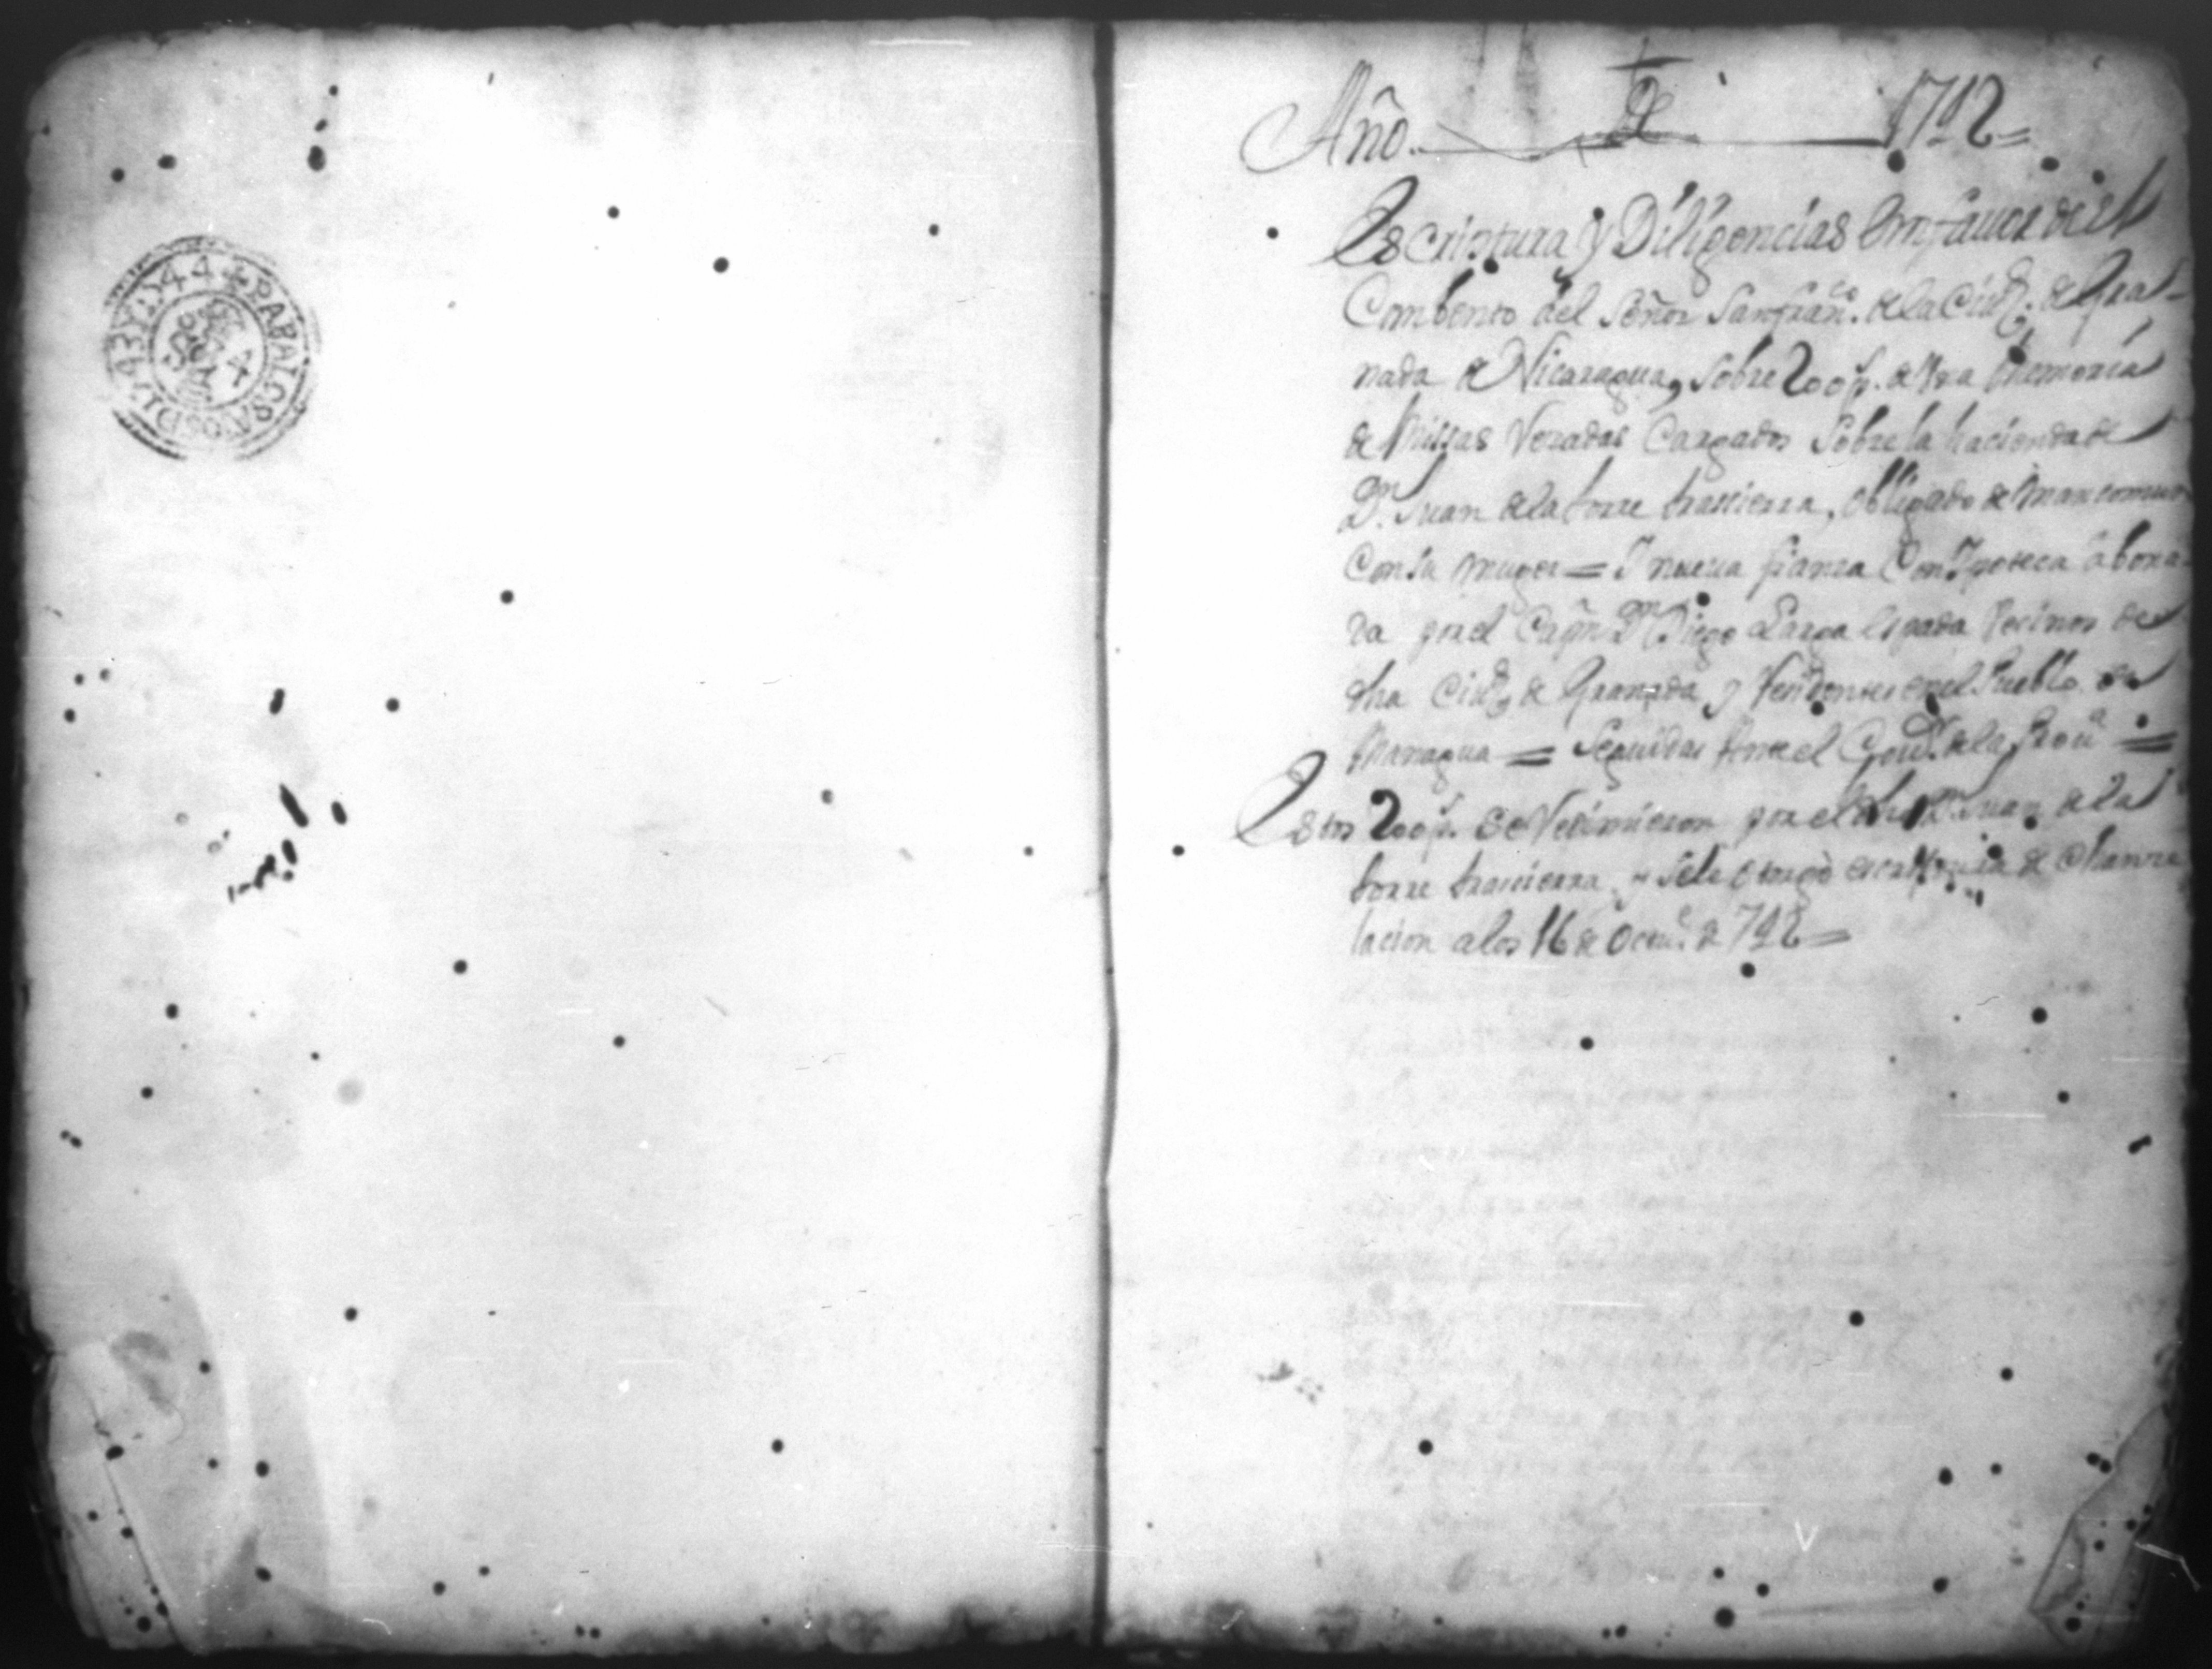 Año de 1742=
Escriptura y Diligencias en fauor del
Combento del Señor San Fran.co de la Ciud. de Gra-
nada de Nicaragua, sobre 200 p.s de Vna memoria
de Missas Resadas Cargados Sobre la hacienda de
D.n Juan de la torre trassierra, obligado de mancomun
Con su muger = Y nueua fianza Con Ypoteca abona-
da por el Capn Dn Diego Larga espada Vecinos de
dha Ciud. de Granada y Residentes en el Pueblo de
Managua = Seguidas Ante el Gour. de la Prou.a =
Estos 200 p.s se Redimieron por el dho Dn Juan de la
torre trassierra y se le otorgó escriptura de Chanze
lacion a los 16 de Octu.e de 742 =
PARA LOS AÑOS D 1743 Y 1744